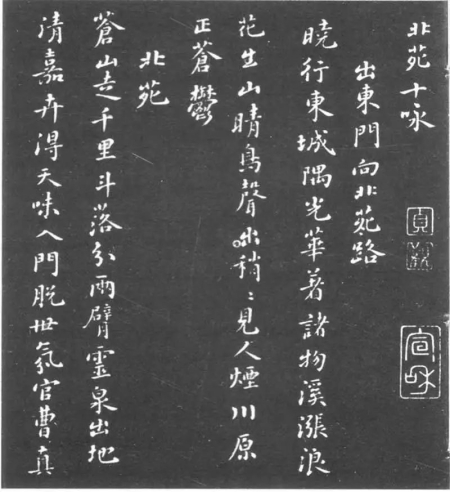 北苑十咏
出東門向北苑路
曉行東城隅光華著諸物溪漲浪
花生山晴鳥聲出稍〻見人煙川原
正蒼鬱
北苑
蒼山走千里斗落分兩臂靈泉出地
清嘉卉得天味入門脫世氛官曹真
貞
宣和